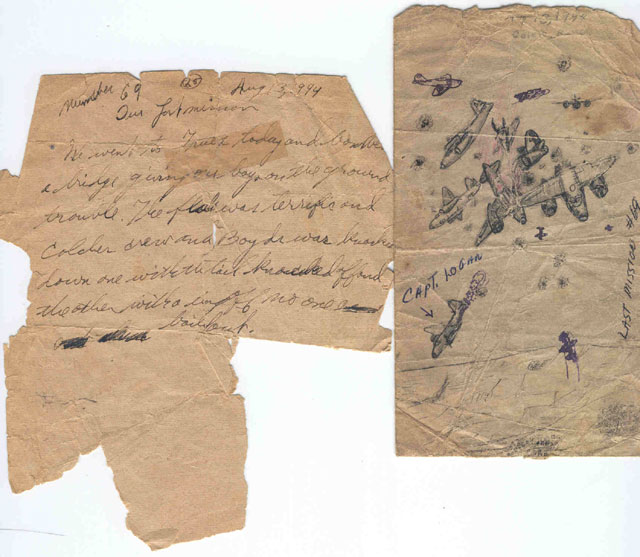 Number 69 Aug 3,
Our last mission
We went to today and
a bridge giving our boys on the ground
trouble. The flak was terrific and
crew and Boyds was
down one with the tail knocked off and
the other with a wing off no one
bailout.
CAPT. LOGAN
LAST MISSION #69